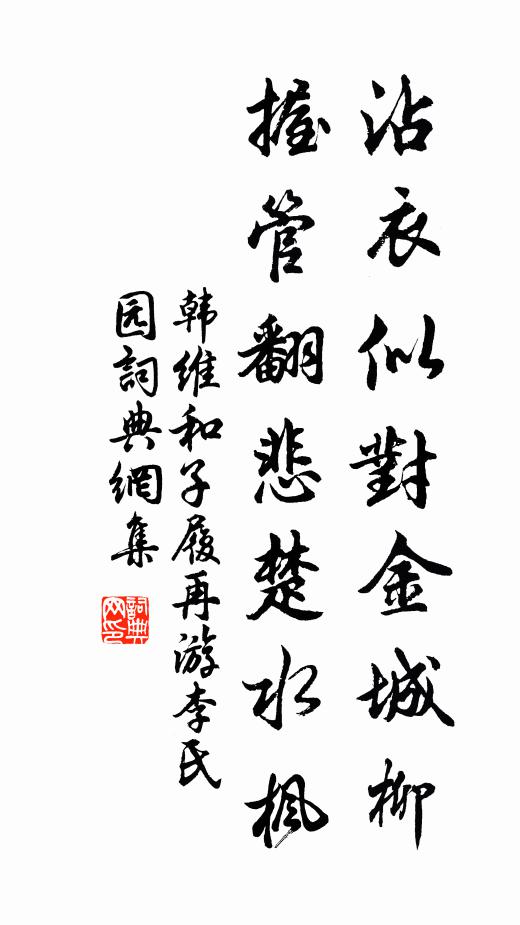 沾衣似對金城柳
握管翻悲楚水楓
韩維和子履再游李氏
园詞典網集
詞典
网印